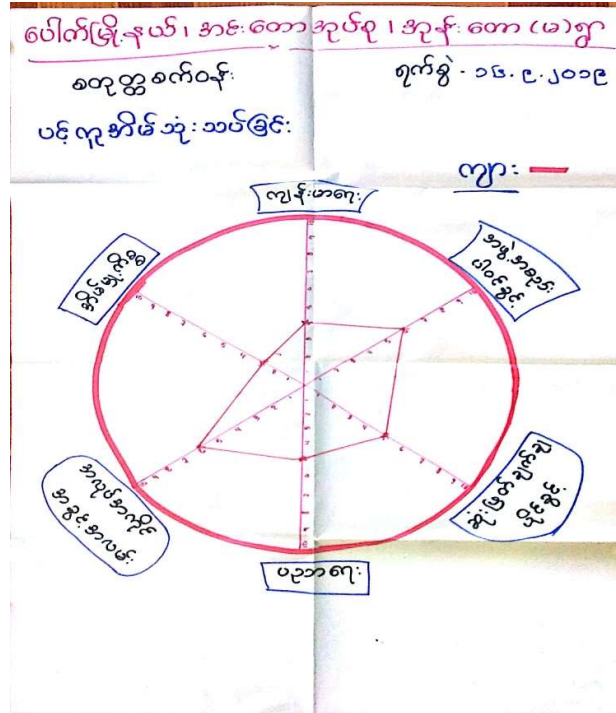 ပေါက်မြို့နယ်၊ အင်းတောအုပ်စု၊ အုန်းတော (မ) ရွာ
စတုတ္ထစက်ဝန်း
ရက်စွဲ - ၁၆.၉.၂၀၁၉
ပင့်ကူအိမ်သုံးသပ်ခြင်း
ကျား
ကျန်းမာရေး
အဖွဲ့အစည်း
ပါဝင်ခွင့်
အိမ်မှုကိစ္စ
ဆုံးဖြတ်ချက်ချ
ပိုင်ခွင့်
အလုပ်အကိုင်
အခွင့်အလမ်း
ပညာရေး